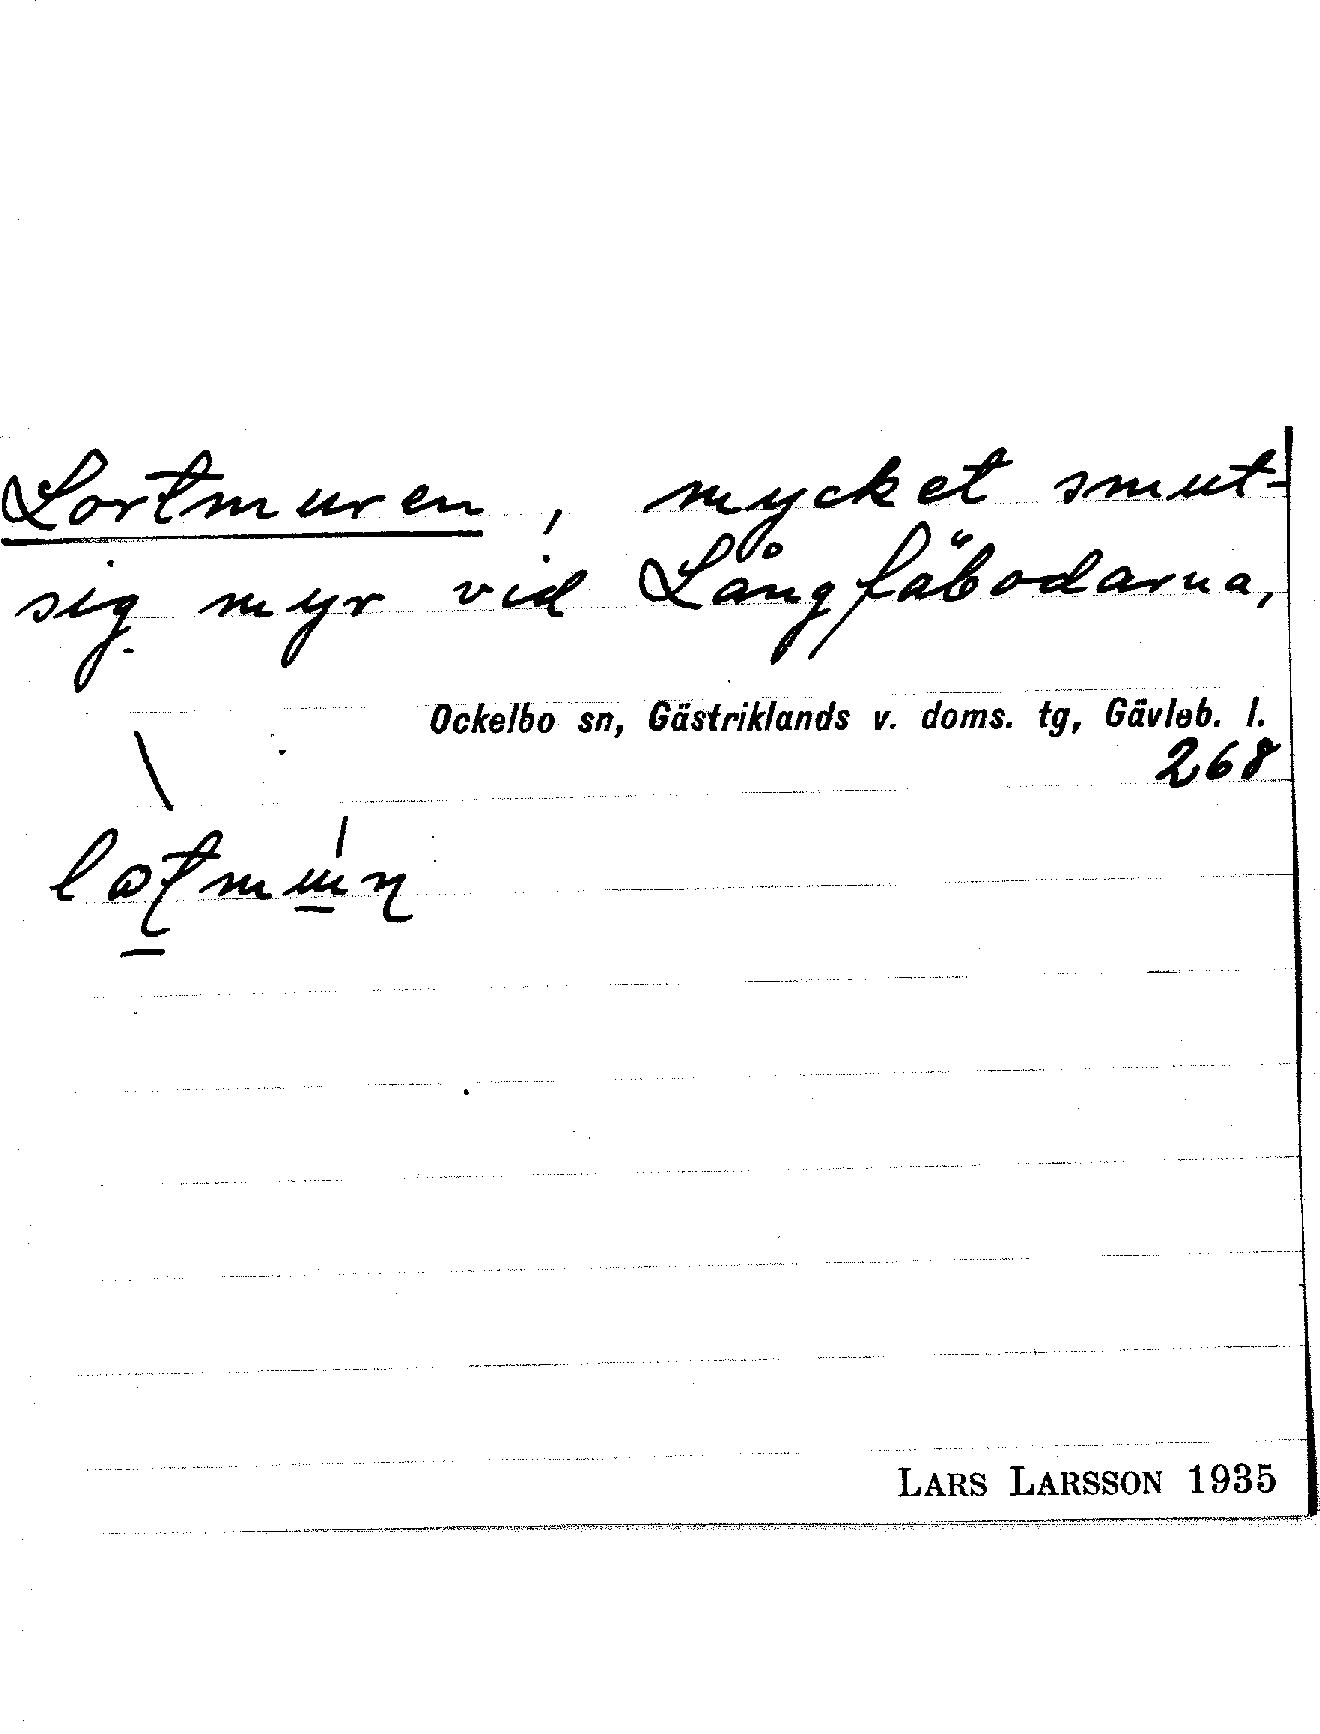 Lortmuren, mycket smut-
sig myr vid Långfäbodarna,
Ockelbo sn, Gästriklands v. doms. tg, Gävleb. l.
268
LARS LARSSON 1935